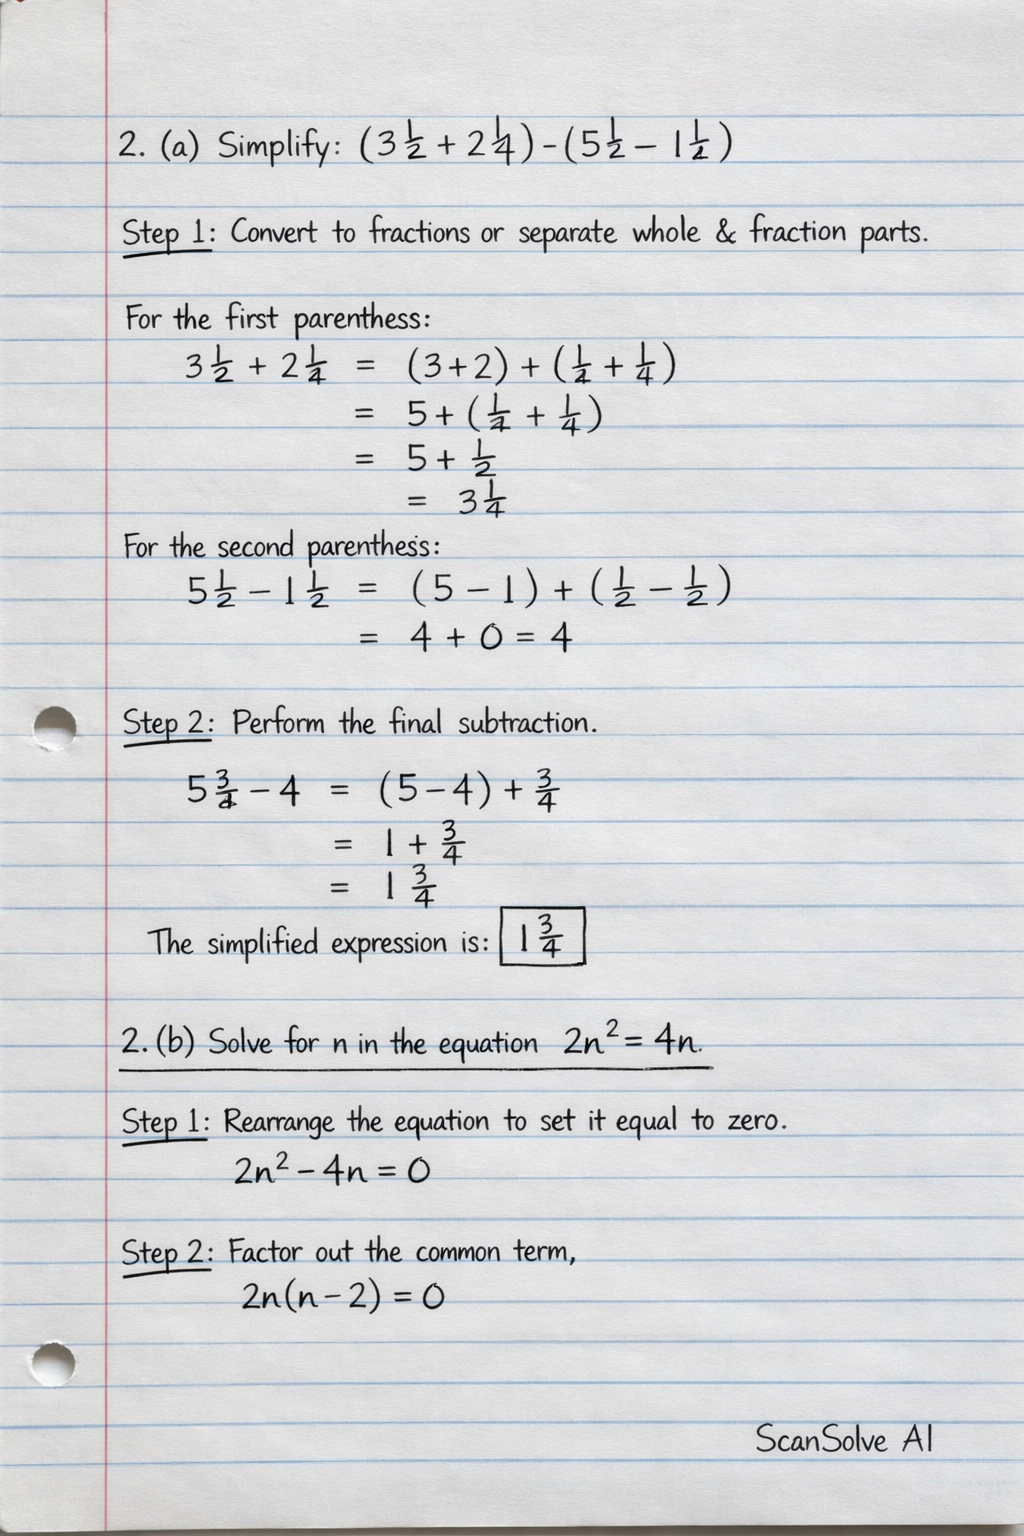 2. (a) Simplify: (3 1/2 + 2 1/4) - (5 1/2 - 1 1/2)
Step 1: Convert to fractions or separate whole & fraction parts.
For the first parenthess:
3 1/2 + 2 1/4 = (3+2) + (1/2 + 1/4)
= 5 + (1/4 + 1/4)
= 5 + 1/2
= 3 1/4
For the second parenthesis:
5 1/2 - 1 1/2 = (5 - 1) + (1/2 - 1/2)
= 4 + 0 = 4
Step 2: Perform the final subtraction.
5 3/4 - 4 = (5-4) + 3/4
= 1 + 3/4
= 1 3/4
The simplified expression is: 1 3/4
2. (b) Solve for n in the equation 2n² = 4n.
Step 1: Rearrange the equation to set it equal to zero.
2n² - 4n = 0
Step 2: Factor out the common term,
2n(n - 2) = 0
ScanSolve AI